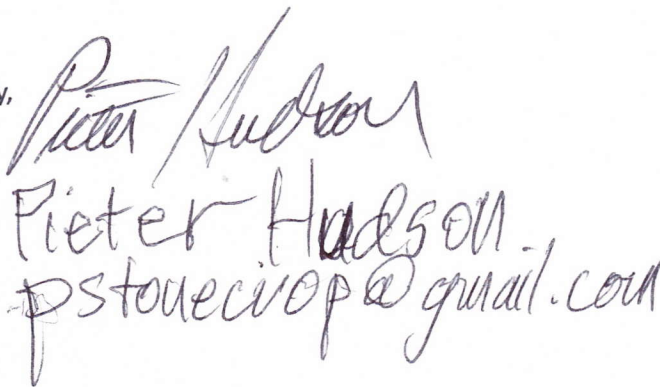 y, Pieter Hudson
Pieter Hudson
pstonecrop@gmail.com